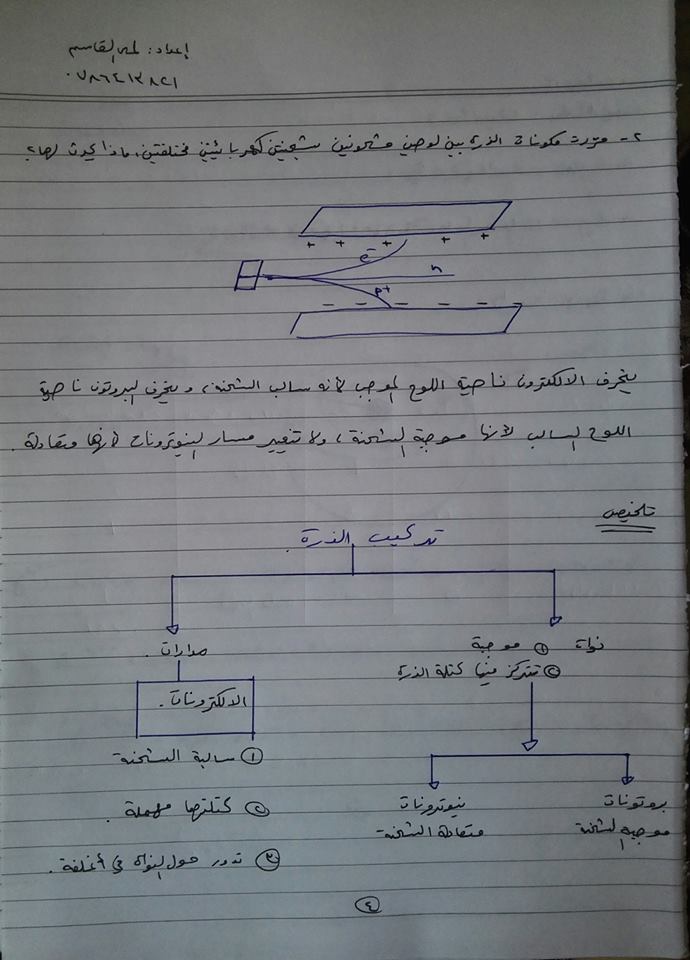 إعداد: لمى القاسم
٠٧٨٦٤١٣٨٢١
٢- مررت مكونات الذرة بين لوحين مشحونين بشحنتين كهربائيتين مختلفتين، ماذا يحدث لها؟
+ + + + +
e-
n
p+
- - - - - -
ينحرف الالكترون ناحية اللوح الموجب لأنه سالب الشحنة، وينحرف البروتون ناحية
اللوح السالب لأنها موجبة الشحنة، ولا تتغير مسار النيوترونات لأنها متعادلة.
تلخيص
تركيب الذرة.
نواة ① موجبة
② تتركز فيها كتلة الذرة
مدارات.
الالكترونات.
① سالبة الشحنة
② كتلتها مهملة.
③ تدور حول النواة في أغلفة.
بروتونات
موجبة الشحنة
نيوترونات
متعادلة الشحنة
٤